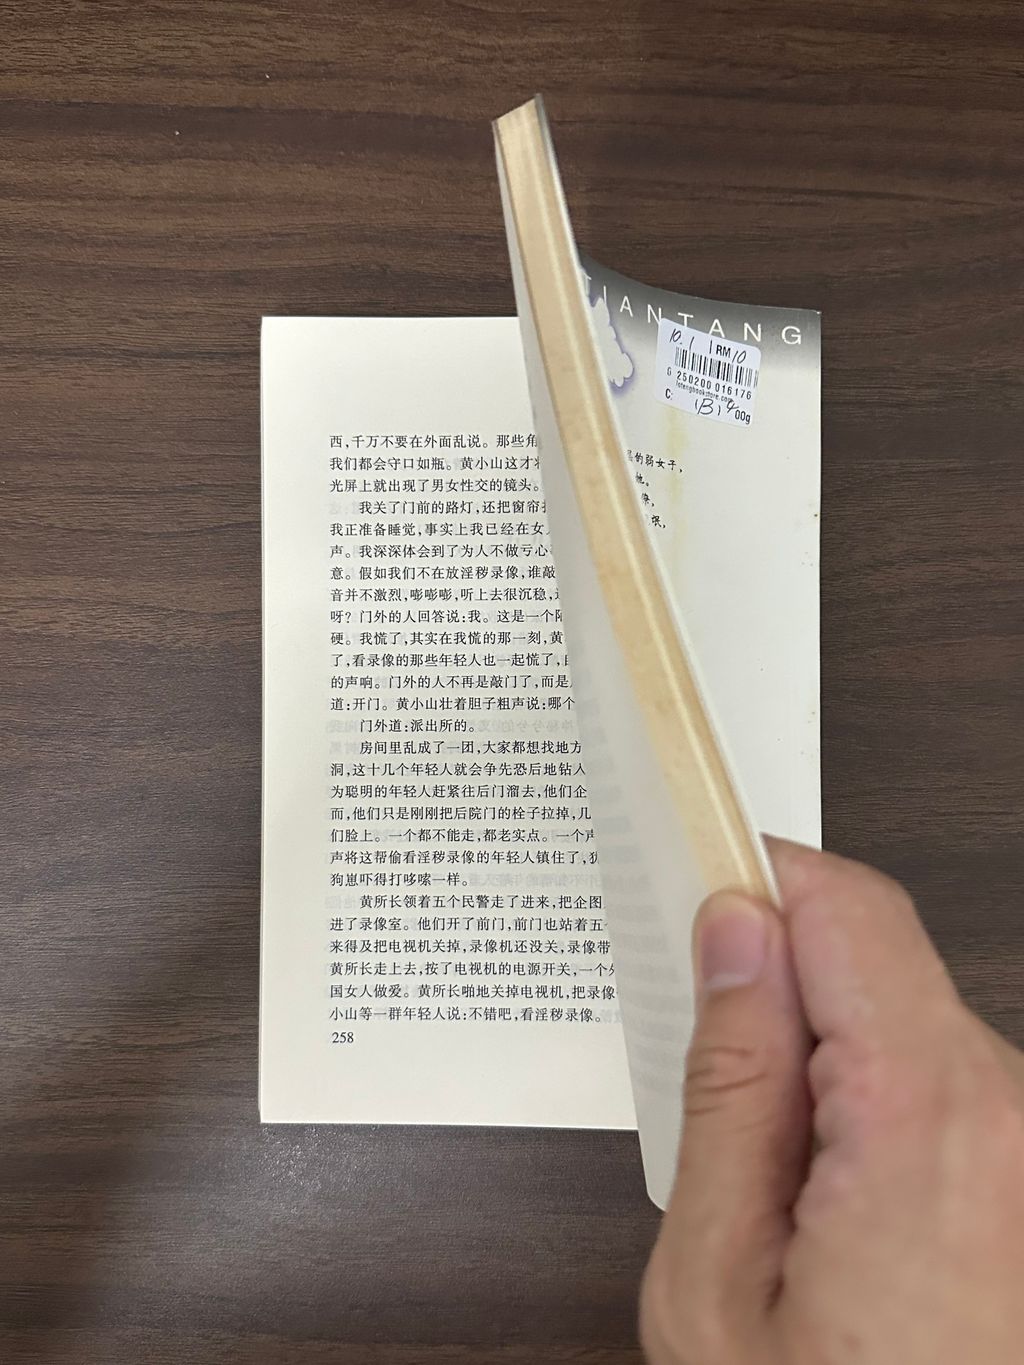 西,千万不要在外面乱说。那些角
我们都会守口如瓶。黄小山这才
光屏上就出现了男女性交的镜头。
我关了门前的路灯,还把窗帘
我正准备睡觉,事实上我已经在女
声。我深深体会到了为人不做亏心
意。假如我们不在放淫秽录像,谁敲
音并不激烈,嘭嘭嘭,听上去很沉稳,
呀?门外的人回答说:我。这是一个
硬。我慌了,其实在我慌的那一刻,黄
了,看录像的那些年轻人也一起慌了,
的声响。门外的人不再是敲门了,而是
道:开门。黄小山壮着胆子粗声说:哪个
门外道:派出所的。
房间里乱成了一团,大家都想找地方
洞,这十几个年轻人就会争先恐后地钻人
为聪明的年轻人赶紧往后门溜去,他们企
而,他们只是刚刚把后院门的栓子拉掉,几
们脸上。一个都不能走,都老实点。一个声
声将这帮偷看淫秽录像的年轻人镇住了,犹
狗崽吓得打哆嗦一样。
黄所长领着五个民警走了进来,把企图
进了录像室。他们开了前门,前门也站着五
来得及把电视机关掉,录像机还没关,录像带
黄所长走上去,按了电视机的电源开关,一个外
国女人做爱。黄所长啪地关掉电视机,把录像
小山等一群年轻人说:不错吧,看淫秽录像。
258
TIANTANG
10.1 RM10
0 250200 016176
C: 00g
的弱女子,
他。